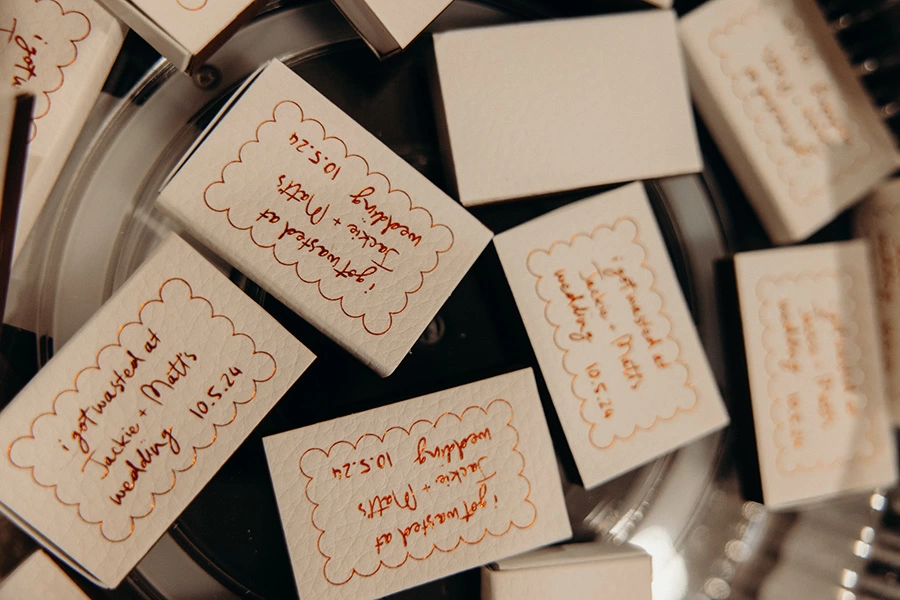 i got wasted at
Jackie + Matt's
wedding 10.5.24
i got wasted at
Jackie + Matt's
wedding 10.5.24
i got wasted at
Jackie + Matt's
wedding 10.5.24
i got wasted at
Jackie + Matt's
wedding 10.5.24
i got wasted at
Jackie + Matt's
wedding 10.5.24
i got